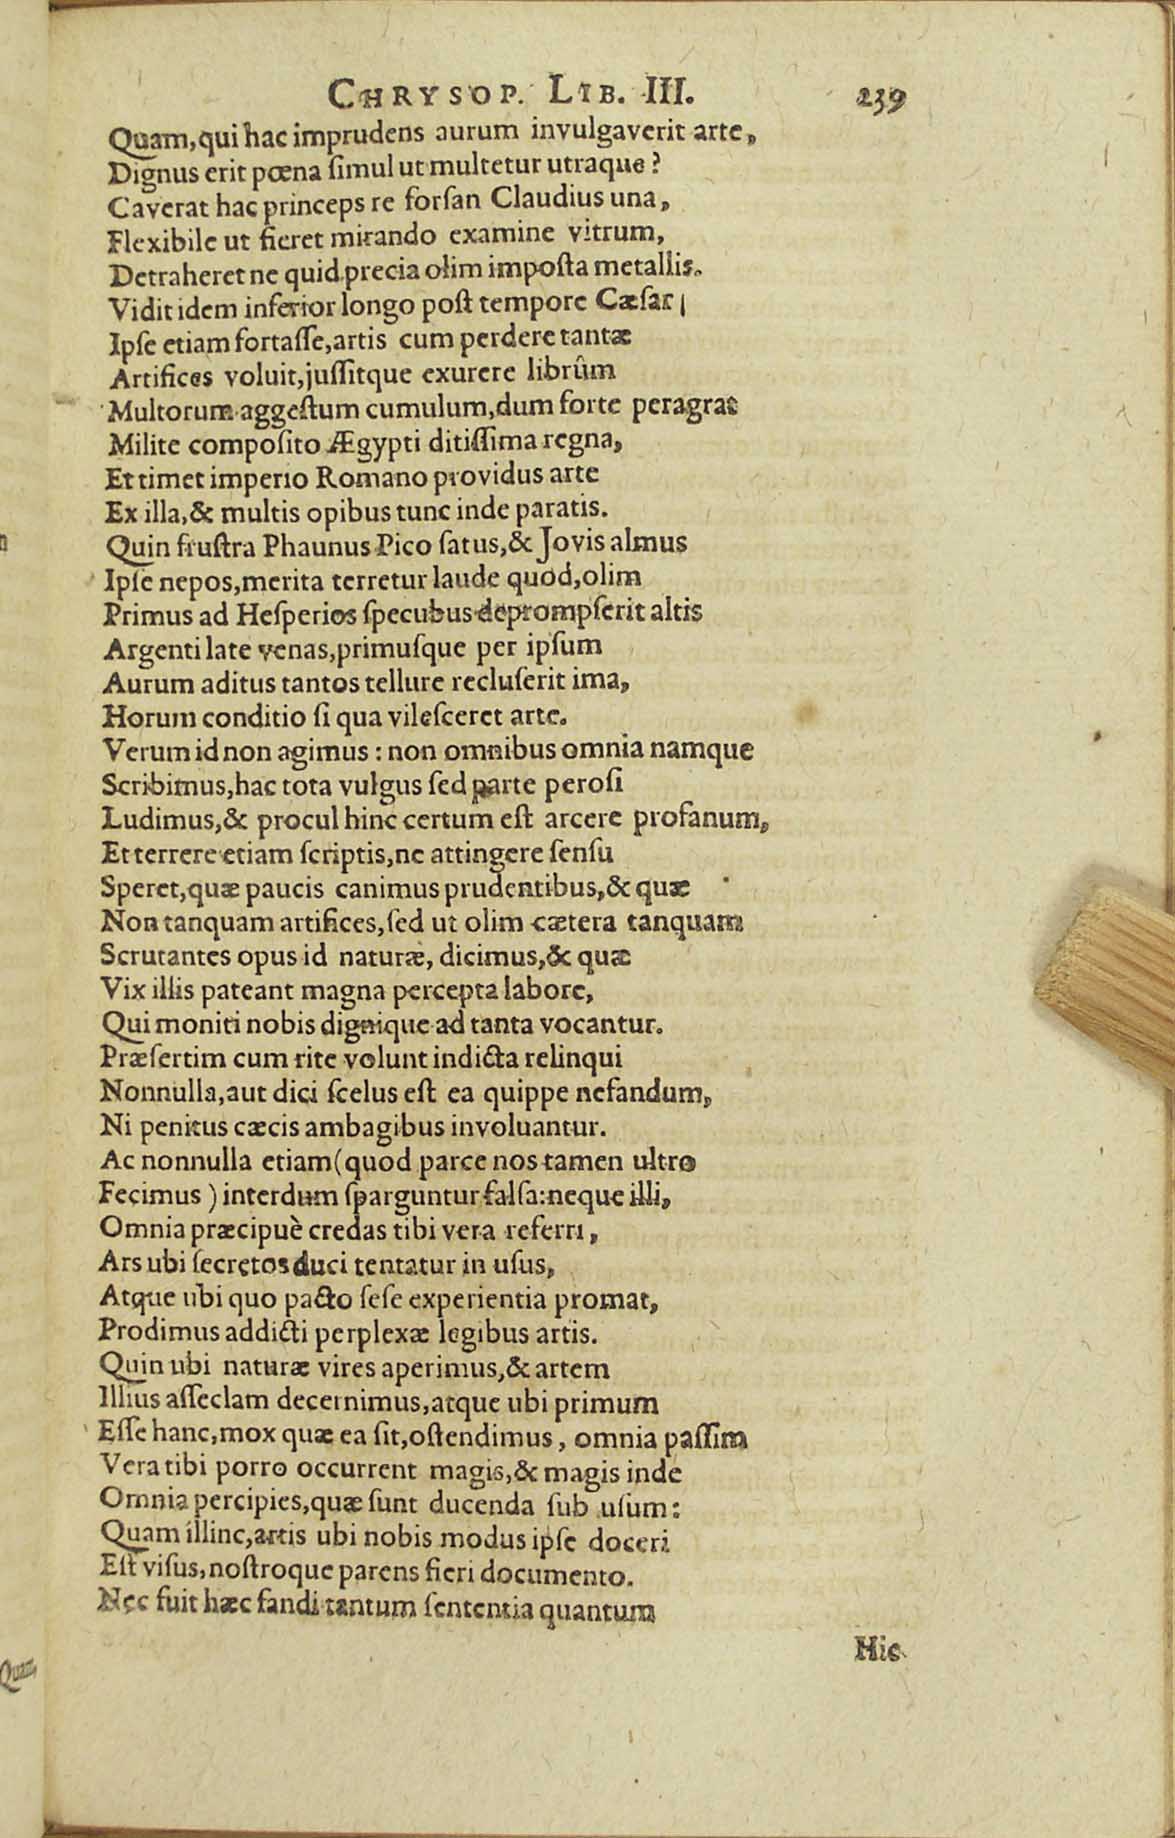 CHRYSOP. LIB. III. 239
Quam, qui hac imprudens aurum invulgaverit arte,
Dignus erit pœna ſimul ut multetur utraque?
Caverat hac princeps re forſan Claudius una,
Flexibile ut fieret mirando examine vitrum,
Detraheret ne quid precia olim impoſta metallis.
Vidit idem inferior longo poſt tempore Cæſar;
Ipſe etiam fortaſſe, artis cum perdere tantæ
Artifices voluit, juſſitque exurere librûm
Multorum aggeſtum cumulum, dum forte peragrat
Milite compoſito Ægypti ditiſſima regna,
Et timet imperio Romano providus arte
Ex illa, & multis opibus tunc inde paratis.
Quin fruſtra Phaunus Pico ſatus, & Jovis almus
Ipſe nepos, merita terretur laude quod, olim
Primus ad Heſperios ſpecubus deprompſerit altis
Argenti late venas, primuſque per ipſum
Aurum aditus tantos tellure recluſerit ima,
Horum conditio ſi qua vileſceret arte.
Verum id non agimus: non omnibus omnia namque
Scribimus, hac tota vulgus ſed parte peroſi
Ludimus, & procul hinc certum eſt arcere profanum,
Et terrere etiam ſcriptis, ne attingere ſenſu
Speret, quæ paucis canimus prudentibus, & quæ
Non tanquam artifices, ſed ut olim cætera tanquam
Scrutantes opus id naturæ, dicimus, & quæ
Vix illis pateant magna percepta labore,
Qui moniti nobis dignique ad tanta vocantur.
Præſertim cum rite volunt indicta relinqui
Nonnulla, aut dici ſcelus eſt ea quippe nefandum,
Ni penitus cæcis ambagibus involuantur.
Ac nonnulla etiam (quod parce nos tamen ultro
Fecimus) interdum ſparguntur falſa: neque illi,
Omnia præcipuè credas tibi vera referri,
Ars ubi ſecretos duci tentatur in uſus,
Atque ubi quo pacto ſeſe experientia promat,
Prodimus addicti perplexæ legibus artis.
Quin ubi naturæ vires aperimus, & artem
Illius aſſeclam decernimus, atque ubi primum
Eſſe hanc, mox quæ ea ſit, oſtendimus, omnia paſſim
Vera tibi porro occurrent magis, & magis inde
Omnia percipies, quæ ſunt ducenda ſub uſum:
Quam illinc, artis ubi nobis modus ipſe doceri
Eſt viſus, noſtroque parens fieri documento.
Nec fuit hæc fandi tantum ſententia quantum
Hic
Quam,